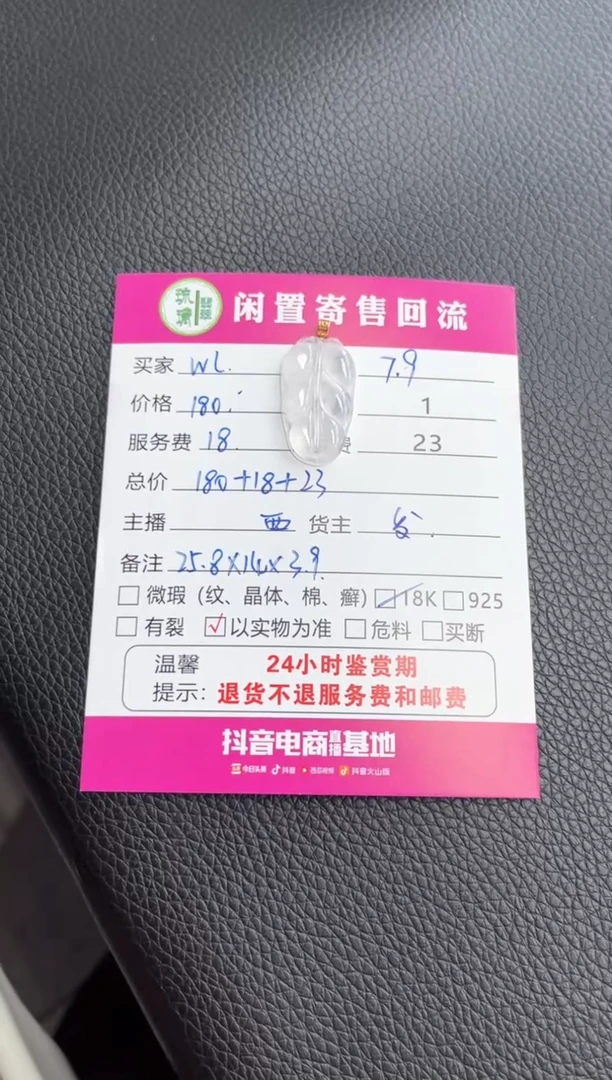 琉璃翡翠 闲置寄售回流
买家 WL. 7.9
价格 180. 1
服务费 18 费 23
总价 180+18+23
主播 西 货主
备注 25.8×14×3.9
微瑕（纹、晶体、棉、癣） 18K 925
有裂 √以实物为准 危料 买断
温馨 24小时鉴赏期
提示：退货不退服务费和邮费
抖音电商直播基地
今日头条 抖音 西瓜视频 抖音火山版